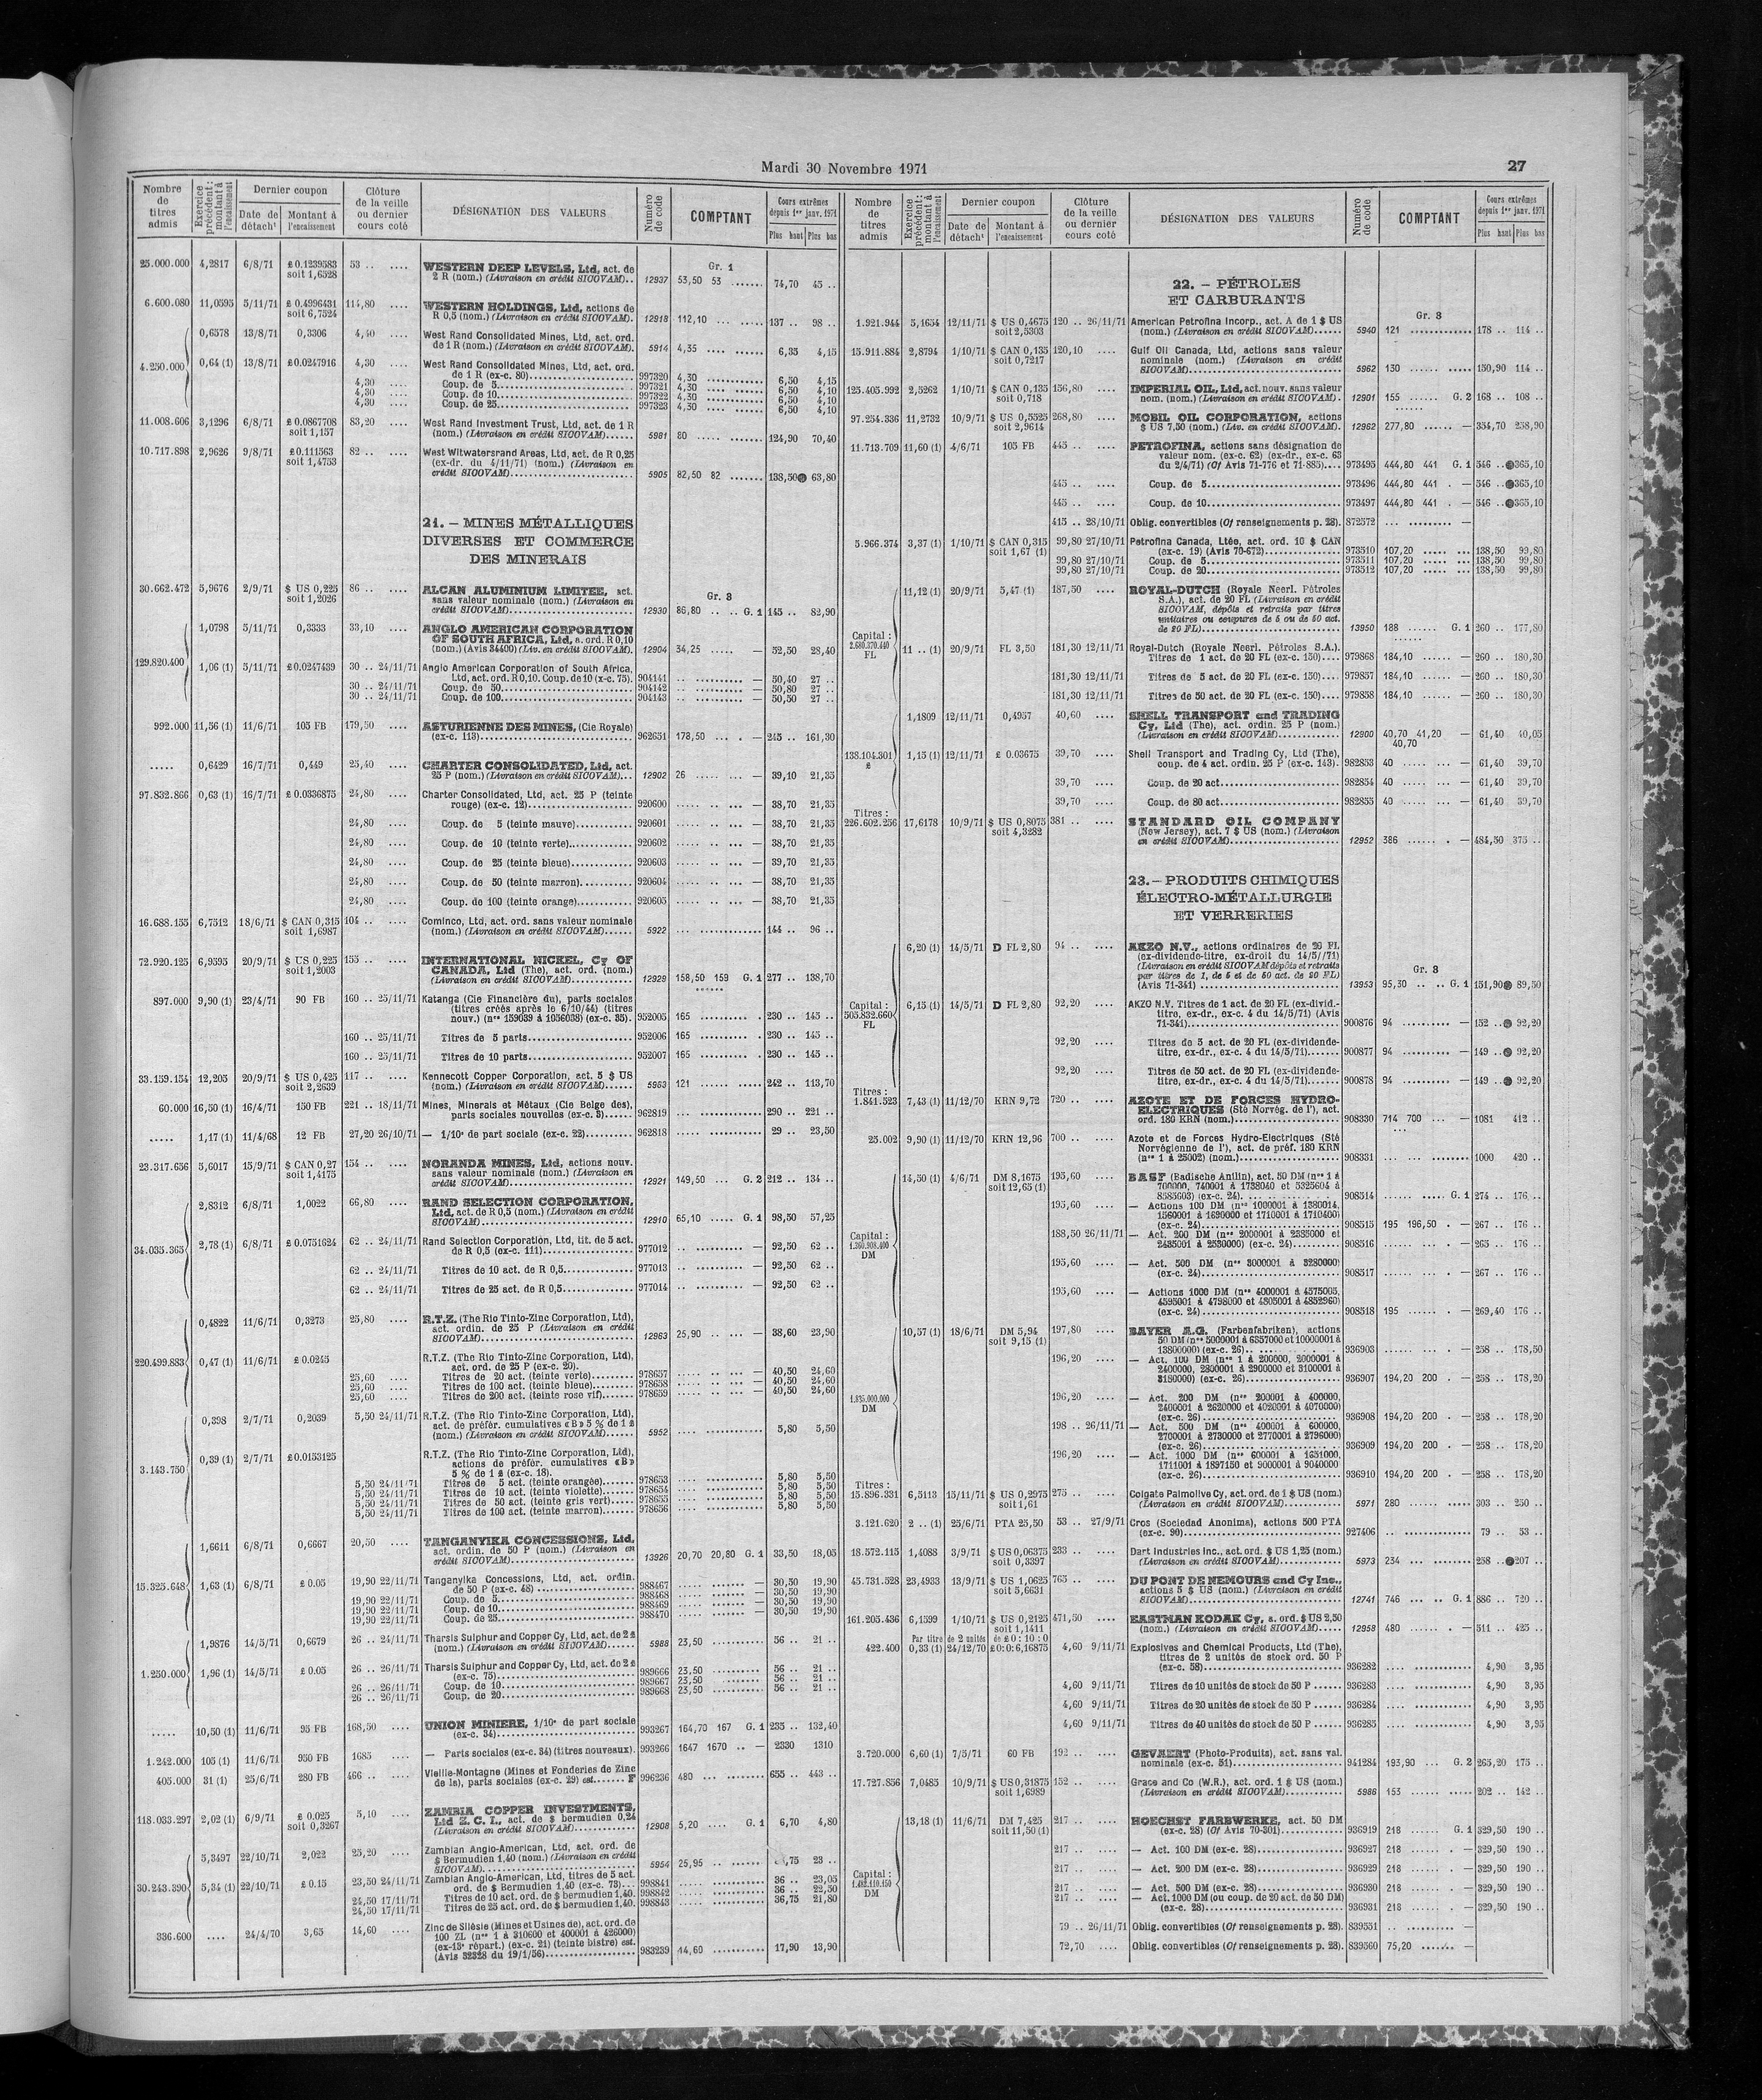 Mardi 30 Novembre 1971
27
Nombre de titres admis | Exercice précédent : montant à l'encaissement | Dernier coupon | Date de détacht | Montant à l'encaissement | Clôture de la veille ou dernier cours coté | DÉSIGNATION DES VALEURS | Numéro de code | COMPTANT | Cours extrêmes depuis 1er janv. 1971 | Plus haut | Plus bas
Gr. 1
25.000.000 4,2817 6/8/71 £ 0.1239583 53 .. .... WESTERN DEEP LEVELS, Ltd, act. de
soit 1,6528 2 R (nom.) (Livraison en crédit SICOVAM).. 12937 53,50 53 ....... 74,70 45 ..
6.600.080 11,0595 5/11/71 £ 0.4996431 114,80 .... WESTERN HOLDINGS, Ltd, actions de
soit 6,7524 R 0,5 (nom.) (Livraison en crédit SICOVAM). 12918 112,10 ... ..... 137 .. 98 ..
0,6578 13/8/71 0,3306 4,40 .... West Rand Consolidated Mines, Ltd, act. ord.
de 1 R (nom.) (Livraison en crédit SICOVAM). 5914 4,35 .... ...... 6,35 4,15
4.250.000 0,64 (1) 13/8/71 £0.0247916 4,30 .... West Rand Consolidated Mines, Ltd, act. ord.
de 1 R (ex-c. 80) 997320 4,30 6,50 4,15
4,30 .... Coup. de 5 997321 4,30 6,50 4,10
4,30 .... Coup. de 10 997322 4,30 6,50 4,10
4,30 .... Coup. de 25 997323 4,30 6,50 4,10
11.008.606 3,1296 6/8/71 £ 0.0867708 83,20 .... West Rand Investment Trust, Ltd, act. de 1 R
soit 1,157 (nom.) (Livraison en crédit SICOVAM)...... 5981 80 ..... ....... 124,90 70,40
10.717.898 2,9626 9/8/71 £0.111563 82 .. .... West Witwatersrand Areas, Ltd, act. de R 0,25
soit 1,4753 (ex-dr. du 4/11/71) (nom.) (Livraison en
crédit SICOVAM) 5905 82,50 82 ....... 138,50 63,80
21. – MINES MÉTALLIQUES
DIVERSES ET COMMERCE
DES MINERAIS
Gr. 3
30.662.472 5,9676 2/9/71 $ US 0,225 86 .. .... ALCAN ALUMINIUM LIMITEE, act.
soit 1,2026 sans valeur nominale (nom.) (Livraison en
crédit SICOVAM) 12930 86,80 .. .. G. 1 145 .. 82,90
1,0798 5/11/71 0,3333 33,10 .... ANGLO AMERICAN CORPORATION
OF SOUTH AFRICA, Ltd, a. ord. R 0,10
(nom.) (Avis 34400) (Liv. en crédit SICOVAM). 12904 34,25 ..... — 52,50 28,40
129.820.400 1,06 (1) 5/11/71 £0.0247439 30 .. 24/11/71 Anglo American Corporation of South Africa,
Ltd, act. ord. R 0,10. Coup. de 10 (x-c. 75). 904141 — 50,40 27 ..
30 .. 24/11/71 Coup. de 50 904142 — 50,80 27 ..
30 .. 24/11/71 Coup. de 100 904143 — 50,50 27 ..
992.000 11,56 (1) 11/6/71 105 FB 179,50 .... ASTURIENNE DES MINES, (Cie Royale)
(ex-c. 113) 962651 178,50 ... . — 245 .. 161,30
..... 0,6429 16/7/71 0,449 25,40 .... CHARTER CONSOLIDATED, Ltd, act.
25 P (nom.) (Livraison en crédit SICOVAM)... 12902 26 ..... ... — 39,10 21,35
97.832.866 0,63 (1) 16/7/71 £ 0.0336875 24,80 .... Charter Consolidated, Ltd, act. 25 P (teinte
rouge) (ex-c. 12) 920600 ..... — 38,70 21,35
24,80 .... Coup. de 5 (teinte mauve) 920601 — 38,70 21,35
24,80 .... Coup. de 10 (teinte verte) 920602 — 38,70 21,35
24,80 .... Coup. de 25 (teinte bleue) 920603 — 39,70 21,35
24,80 .... Coup. de 50 (teinte marron) 920604 — 38,70 21,35
24,80 .... Coup. de 100 (teinte orange) 920605 — 38,70 21,35
16.688.155 6,7512 18/6/71 $ CAN 0,315 104 .. .... Cominco, Ltd, act. ord. sans valeur nominale
soit 1,6987 (nom.) (Livraison en crédit SICOVAM)...... 5922 ... ............ 144 .. 96 ..
72.920.125 6,9595 20/9/71 $ US 0,225 155 .. .... INTERNATIONAL NICKEL, Cy OF
soit 1,2003 CANADA, Ltd (The), act. ord. (nom.)
(Livraison en crédit SICOVAM) 12929 158,50 159 G. 1 277 .. 138,70
897.000 9,90 (1) 23/4/71 90 FB 160 .. 25/11/71 Katanga (Cie Financière du), parts sociales
(titres créés après le 6/10/44) (titres
nouv.) (nos 159039 à 1056038) (ex-c. 35). 952005 165 230 .. 145 ..
160 .. 25/11/71 Titres de 5 parts 952006 165 230 .. 145 ..
160 .. 25/11/71 Titres de 10 parts 952007 165 230 .. 145 ..
33.159.154 12,205 20/9/71 $ US 0,425 117 .. .... Kennecott Copper Corporation, act. 5 $ US
soit 2,2639 (nom.) (Livraison en crédit SICOVAM)...... 5963 121 242 .. 113,70
60.000 16,50 (1) 16/4/71 150 FB 221 .. 18/11/71 Mines, Minerais et Métaux (Cie Belge des),
parts sociales nouvelles (ex-c. 5) 962819 290 .. 221 ..
..... 1,17 (1) 11/4/68 12 FB 27,20 26/10/71 — 1/10e de part sociale (ex-c. 22) 962818 29 .. 23,50
23.317.656 5,6017 15/9/71 $ CAN 0,27 154 .. .... NORANDA MINES, Ltd, actions nouv.
soit 1,4175 sans valeur nominale (nom.) (Livraison en
crédit SICOVAM) 12921 149,50 ... G. 2 212 .. 134 ..
2,8312 6/8/71 1,0022 66,80 .... RAND SELECTION CORPORATION,
Ltd, act. de R 0,5 (nom.) (Livraison en crédit
SICOVAM) 12910 65,10 ..... G. 1 98,50 57,25
34.035.365 2,78 (1) 6/8/71 £ 0.0751624 62 .. 24/11/71 Rand Selection Corporation, Ltd, tit. de 5 act.
de R 0,5 (ex-c. 111) 977012 — 92,50 62 ..
62 .. 24/11/71 Titres de 10 act. de R 0,5 977013 — 92,50 62 ..
62 .. 24/11/71 Titres de 25 act. de R 0,5 977014 — 92,50 62 ..
0,4822 11/6/71 0,3273 25,80 .... R.T.Z. (The Rio Tinto-Zinc Corporation, Ltd),
act. ordin. de 25 P (Livraison en crédit
SICOVAM) 12963 25,90 ... ... — 38,60 23,90
220.499.883 0,47 (1) 11/6/71 £ 0.0245 R.T.Z. (The Rio Tinto-Zinc Corporation, Ltd),
act. ord. de 25 P (ex-c. 20).
25,60 .... Titres de 20 act. (teinte verte) 978657 — 40,50 24,60
25,60 .... Titres de 100 act. (teinte bleue) 978658 — 40,50 24,60
25,60 .... Titres de 200 act. (teinte rose vif) 978659 — 40,50 24,60
0,398 2/7/71 0,2039 5,50 24/11/71 R.T.Z. (The Rio Tinto-Zinc Corporation, Ltd),
act. de préfér. cumulatives «B» 5 % de 1 £
(nom.) (Livraison en crédit SICOVAM)...... 5952 5,80 5,50
3.143.750 0,39 (1) 2/7/71 £0.0153125 R.T.Z. (The Rio Tinto-Zinc Corporation, Ltd),
actions de préfér. cumulatives «B»
5 % de 1 £ (ex-c. 18).
5,50 24/11/71 Titres de 5 act. (teinte orangée) 978653 5,80 5,50
5,50 24/11/71 Titres de 10 act. (teinte violette) 978654 5,80 5,50
5,50 24/11/71 Titres de 50 act. (teinte gris vert) 978655 5,80 5,50
5,50 24/11/71 Titres de 100 act. (teinte marron) 978656 5,80 5,50
1,6611 6/8/71 0,6667 20,50 .... TANGANYIKA CONCESSIONS, Ltd,
act. ordin. de 50 P (nom.) (Livraison en
crédit SICOVAM) 13926 20,70 20,80 G. 1 33,50 18,05
15.325.648 1,63 (1) 6/8/71 £ 0.05 19,90 22/11/71 Tanganyika Concessions, Ltd, act. ordin.
de 50 P (ex-c. 48) 988467 — 30,50 19,90
19,90 22/11/71 Coup. de 5 988468 — 30,50 19,90
19,90 22/11/71 Coup. de 10 988469 — 30,50 19,90
19,90 22/11/71 Coup. de 25 988470 — 30,50 19,90
1,9876 14/5/71 0,6679 26 .. 24/11/71 Tharsis Sulphur and Copper Cy, Ltd, act. de 2 £
(nom.) (Livraison en crédit SICOVAM)...... 5988 23,50 56 .. 21 ..
1.250.000 1,96 (1) 14/5/71 £ 0.05 26 .. 26/11/71 Tharsis Sulphur and Copper Cy, Ltd, act. de 2 £
(ex-c. 75) 989666 23,50 56 .. 21 ..
26 .. 26/11/71 Coup. de 10 989667 23,50 56 .. 21 ..
26 .. 26/11/71 Coup. de 20 989668 23,50 56 .. 21 ..
..... 10,50 (1) 11/6/71 95 FB 168,50 .... UNION MINIERE, 1/10e de part sociale
(ex-c. 34) 993267 164,70 167 G. 1 235 .. 132,40
1.242.000 105 (1) 11/6/71 950 FB 1685 .... — Parts sociales (ex-c. 34) (titres nouveaux). 993266 1647 1670 .. — 2330 1310
405.000 31 (1) 25/6/71 280 FB 466 .. .... Vieille-Montagne (Mines et Fonderies de Zinc
de la), parts sociales (ex-c. 29) est...... F 996236 480 655 .. 443 ..
118.033.297 2,02 (1) 6/9/71 £ 0.025 5,10 .... ZAMBIA COPPER INVESTMENTS,
soit 0,3267 Ltd Z. C. I., act. de $ bermudien 0,24
(Livraison en crédit SICOVAM) 12908 5,20 .... G. 1 6,70 4,80
5,3497 22/10/71 2,022 25,20 .... Zambian Anglo-American, Ltd, act. ord. de
$ Bermudien 1,40 (nom.) (Livraison en crédit
SICOVAM) 5954 25,95 ,75 23 ..
30.243.390 5,34 (1) 22/10/71 £ 0.15 23,50 24/11/71 Zambian Anglo-American, Ltd, titres de 5 act.
ord. de $ Bermudien 1,40 (ex-c. 73)... 998841 36 .. 23,05
24,50 17/11/71 Titres de 10 act. ord. de $ bermudien 1,40. 998842 36 .. 22,50
24,50 17/11/71 Titres de 25 act. ord. de $ bermudien 1,40. 998843 36,75 21,80
336.600 .... 24/4/70 3,65 14,60 .... Zinc de Silésie (Mines et Usines de), act. ord. de
100 ZL (nos 1 à 310600 et 400001 à 426000)
(ex-13e répart.) (ex-c. 21) (teinte bistre) est.
(Avis 32328 du 19/1/56) 983239 14,60 17,90 13,90
Nombre de titres admis | Exercice précédent : montant à l'encaissement | Dernier coupon | Date de détacht | Montant à l'encaissement | Clôture de la veille ou dernier cours coté | DÉSIGNATION DES VALEURS | Numéro de code | COMPTANT | Cours extrêmes depuis 1er janv. 1971 | Plus haut | Plus bas
22. – PÉTROLES
ET CARBURANTS
Gr. 3
1.921.944 5,1654 12/11/71 $ US 0,4675 120 .. 26/11/71 American Petrofina Incorp., act. A de 1 $ US
soit 2,5303 (nom.) (Livraison en crédit SICOVAM)...... 5940 121 178 .. 114 ..
15.911.884 2,8794 1/10/71 $ CAN 0,135 120,10 .... Gulf Oil Canada, Ltd, actions sans valeur
soit 0,7217 nominale (nom.) (Livraison en crédit
SICOVAM) 5962 130 150,90 114 ..
125.405.992 2,5262 1/10/71 $ CAN 0,135 156,80 .... IMPERIAL OIL, Ltd, act. nouv. sans valeur
soit 0,718 nom. (nom.) (Livraison en crédit SICOVAM). 12901 155 ...... G. 2 168 .. 108 ..
97.254.336 11,2732 10/9/71 $ US 0,5525 268,80 .... MOBIL OIL CORPORATION, actions
soit 2,9614 $ US 7,50 (nom.) (Liv. en crédit SICOVAM). 12962 277,80 ...... — 354,70 258,90
11.713.709 11,60 (1) 4/6/71 105 FB 445 .. .... PETROFINA, actions sans désignation de
valeur nom. (ex-c. 62) (ex-dr., ex-c. 63
du 2/4/71) (Cf Avis 71-776 et 71-885).... 973495 444,80 441 G. 1 546 .. 365,10
445 .. .... Coup. de 5 973496 444,80 441 . — 546 .. 365,10
445 .. .... Coup. de 10 973497 444,80 441 . — 546 .. 365,10
415 .. 28/10/71 Oblig. convertibles (Cf renseignements p. 28). 872572 —
5.966.374 3,37 (1) 1/10/71 $ CAN 0,315 99,80 27/10/71 Petrofina Canada, Ltée, act. ord. 10 $ CAN
soit 1,67 (1) (ex-c. 19) (Avis 70-672) 973510 107,20 138,50 99,80
99,80 27/10/71 Coup. de 5 973511 107,20 138,50 99,80
99,80 27/10/71 Coup. de 20 973512 107,20 138,50 99,80
11,12 (1) 20/9/71 5,47 (1) 187,50 .... ROYAL-DUTCH (Royale Neerl. Pétroles
S.A.), act. de 20 FL (Livraison en crédit
SICOVAM, dépôts et retraits par titres
unitaires ou coupures de 5 ou de 50 act.
de 20 FL) 13950 188 ...... G. 1 260 .. 177,80
Capital : 2.680.370.440 FL
11 .. (1) 20/9/71 FL 3,50 181,30 12/11/71 Royal-Dutch (Royale Neerl. Pétroles S.A.).
Titres de 1 act. de 20 FL (ex-c. 150).... 979868 184,10 — 260 .. 180,30
181,30 12/11/71 Titres de 5 act. de 20 FL (ex-c. 150).... 979857 184,10 — 260 .. 180,30
181,30 12/11/71 Titres de 50 act. de 20 FL (ex-c. 150).... 979858 184,10 — 260 .. 180,30
1,1809 12/11/71 0,4957 40,60 .... SHELL TRANSPORT and TRADING
Cy, Ltd (The), act. ordin. 25 P (nom.)
(Livraison en crédit SICOVAM) 12900 40,70 41,20 — 61,40 40,05
40,70
138.104.301 £ 1,15 (1) 12/11/71 £ 0.03675 39,70 .... Shell Transport and Trading Cy, Ltd (The),
coup. de 4 act. ordin. 25 P (ex-c. 143). 982853 40 — 61,40 39,70
39,70 .... Coup. de 20 act 982854 40 — 61,40 39,70
39,70 .... Coup. de 80 act 982855 40 — 61,40 39,70
Titres :
226.602.256 17,6178 10/9/71 $ US 0,8075 381 .. .... STANDARD OIL COMPANY
soit 4,3282 (New Jersey), act. 7 $ US (nom.) (Livraison
en crédit SICOVAM) 12952 386 ...... . — 484,50 375 ..
23. – PRODUITS CHIMIQUES
ÉLECTRO-MÉTALLURGIE
ET VERRERIES
Gr. 3
6,20 (1) 14/5/71 D FL 2,80 94 .. .... AKZO N.V., actions ordinaires de 20 FL
(ex-dividende-titre, ex-droit du 14/5//71)
(Livraison en crédit SICOVAM dépôts et retraits
par titres de 1, de 5 et de 50 act. de 20 FL)
(Avis 71-341) 13953 95,30 .. .. G. 1 151,90 89,50
Capital : 505.832.660 FL
6,15 (1) 14/5/71 D FL 2,80 92,20 .... AKZO N.V. Titres de 1 act. de 20 FL (ex-divid.-
titre, ex-dr., ex-c. 4 du 14/5/71) (Avis
71-341) 900876 94 — 152 .. 92,20
92,20 .... Titres de 5 act. de 20 FL (ex-dividende-
titre, ex-dr., ex-c. 4 du 14/5/71)....... 900877 94 — 149 .. 92,20
92,20 .... Titres de 50 act. de 20 FL (ex-dividende-
titre, ex-dr., ex-c. 4 du 14/5/71)....... 900878 94 — 149 .. 92,20
Titres :
1.841.523 7,43 (1) 11/12/70 KRN 9,72 720 .. .... AZOTE ET DE FORCES HYDRO-
ELECTRIQUES (Sté Norvég. de l'), act.
ord. 180 KRN (nom.) 908330 714 700 ... — 1081 412 ..
25.002 9,90 (1) 11/12/70 KRN 12,96 700 .. .... Azote et de Forces Hydro-Electriques (Sté
Norvégienne de l'), act. de préf. 180 KRN
(nos 1 à 25002) (nom.) 908331 — 1000 420 ..
14,50 (1) 4/6/71 DM 8,1675 195,60 .... BASF (Badische Anilin), act. 50 DM (nos 1 à
soit 12,65 (1) 700000, 740001 à 1738040 et 5325604 à
8585603) (ex-c. 24) 908514 G. 1 274 .. 176 ..
195,60 .... — Actions 100 DM (nos 1000001 à 1380014,
1560001 à 1690000 et 1710001 à 1710400)
(ex-c. 24) 908515 195 196,50 . — 267 .. 176 ..
Capital : 1.360.908.400 DM
188,50 26/11/71 — Act. 200 DM (nos 2000001 à 2335000 et
2485001 à 2530000) (ex-c. 24) 908516 — 265 .. 176 ..
195,60 .... — Act. 500 DM (nos 3000001 à 3280000)
(ex-c. 24) 908517 — 267 .. 176 ..
195,60 .... — Actions 1000 DM (nos 4000001 à 4575005,
4595001 à 4798000 et 4805001 à 4852960)
(ex-c. 24) 908518 195 — 269,40 176 ..
10,57 (1) 18/6/71 DM 5,94 197,80 .... BAYER A.G. (Farbenfabriken), actions
soit 9,15 (1) 50 DM (nos 5000001 à 6357000 et 10000001 à
13800000) (ex-c. 26) 936903 — 258 .. 178,50
196,20 .... — Act. 100 DM (nos 1 à 200000, 2000001 à
2400000, 2800001 à 2900000 et 3100001 à
3150000) (ex-c. 26) 936907 194,20 200 . — 258 .. 178,20
1.835.000.000 DM
196,20 .... — Act. 200 DM (nos 200001 à 400000,
2400001 à 2620000 et 4020001 à 4070000)
(ex-c. 26) 936908 194,20 200 . — 258 .. 178,20
198 .. 26/11/71 — Act. 500 DM (nos 400001 à 600000,
2700001 à 2730000 et 2770001 à 2796000)
(ex-c. 26) 936909 194,20 200 . — 258 .. 178,20
196,20 .... — Act. 1000 DM (nos 600001 à 1651000,
1711001 à 1897150 et 9000001 à 9040000
(ex-c. 26) 936910 194,20 200 . — 258 .. 178,20
Titres :
15.896.331 6,5113 15/11/71 $ US 0,2975 275 .. .... Colgate Palmolive Cy, act. ord. de 1 $ US (nom.)
soit 1,61 (Livraison en crédit SICOVAM) 5971 280 303 .. 250 ..
3.121.620 2 .. (1) 25/6/71 PTA 25,50 53 .. 27/9/71 Cros (Sociedad Anonima), actions 500 PTA
(ex-c. 90) 927406 79 .. 53 ..
18.572.115 1,4088 3/9/71 $ US 0,06375 233 .. .... Dart Industries Inc., act. ord. $ US 1,25 (nom.)
soit 0,3397 (Livraison en crédit SICOVAM) 5973 234 258 .. 207 ..
45.731.528 23,4933 13/9/71 $ US 1,0625 765 .. .... DU PONT DE NEMOURS and Cy Inc.,
soit 5,6631 actions 5 $ US (nom.) (Livraison en crédit
SICOVAM) 12741 746 ... .. G. 1 886 .. 720 ..
161.205.436 6,1599 1/10/71 $ US 0,2125 471,50 .... EASTMAN KODAK Cy, a. ord. $ US 2,50
soit 1,1411 (nom.) (Livraison en crédit SICOVAM) 12958 480 — 511 .. 425 ..
Par titre de 2 unités de £ 0 : 10 : 0
422.400 0,33 (1) 24/12/70 £0:0:6,16875 4,60 9/11/71 Explosives and Chemical Products, Ltd (The),
titres de 2 unités de stock ord. 50 P
(ex-c. 58) 936282 4,90 3,95
4,60 9/11/71 Titres de 10 unités de stock de 50 P 936283 4,90 3,95
4,60 9/11/71 Titres de 20 unités de stock de 50 P 936284 4,90 3,95
4,60 9/11/71 Titres de 40 unités de stock de 50 P 936285 4,90 3,95
3.720.000 6,60 (1) 7/5/71 60 FB 192 .. .... GEVAERT (Photo-Produits), act. sans val.
nominale (ex-c. 51) 941284 193,90 ... G. 2 265,20 175 ..
17.727.856 7,0485 10/9/71 $ US 0,31875 152 .. .... Grace and Co (W.R.), act. ord. 1 $ US (nom.)
soit 1,6989 (Livraison en crédit SICOVAM) 5986 155 202 .. 142 ..
13,18 (1) 11/6/71 DM 7,425 217 .. .... HOECHST FARBWERKE, act. 50 DM
soit 11,50 (1) (ex-c. 28) (Cf Avis 70-301) 936919 218 G. 1 329,50 190 ..
217 .. .... — Act. 100 DM (ex-c. 28) 936927 218 — 329,50 190 ..
Capital : 1.482.110.150 DM
217 .. .... — Act. 200 DM (ex-c. 28) 936929 218 — 329,50 190 ..
217 .. .... — Act. 500 DM (ex-c. 28) 936930 218 — 329,50 190 ..
217 .. .... — Act. 1000 DM (ou coup. de 20 act. de 50 DM)
(ex-c. 28) 936931 218 — 329,50 190 ..
79 .. 26/11/71 Oblig. convertibles (Cf renseignements p. 28). 839551 —
72,70 .... Oblig. convertibles (Cf renseignements p. 28). 839560 75,20 —